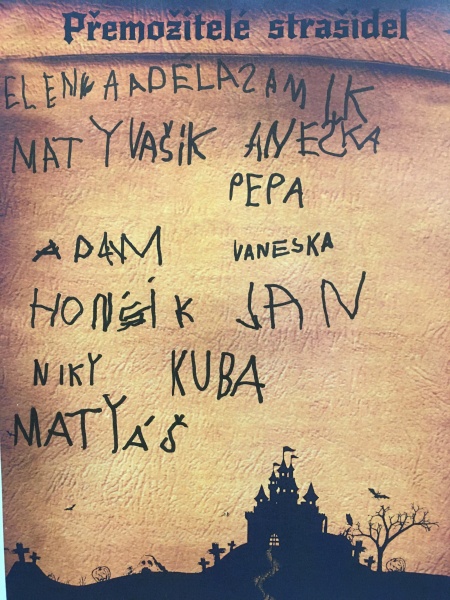 Přemožitelé strašidel
ELENKA ADÉLA SAMIK
MATY VAŠÍK ANEČKA
PEPA
ADAM VANESKA
HONZÍK JAN
NIKY KUBA
MATYÁŠ